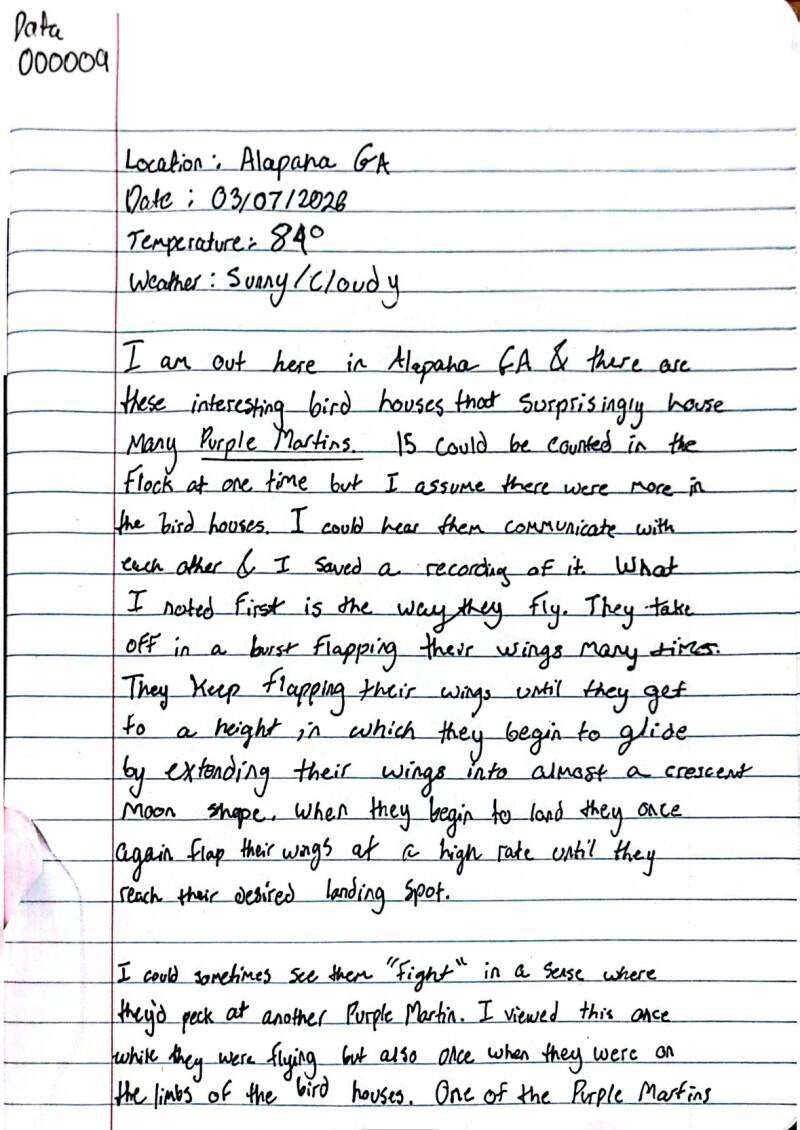 Data
000009
Location: Alapaha GA
Date: 03/07/2026
Temperature: 84°
Weather: Sunny/Cloudy
I am out here in Alapaha GA & there are
these interesting bird houses that surprisingly house
many Purple Martins. 15 could be counted in the
flock at one time but I assume there were more in
the bird houses. I could hear them communicate with
each other & I saved a recording of it. What
I noted first is the way they fly. They take
off in a burst flapping their wings many times.
They keep flapping their wings until they get
to a height in which they begin to glide
by extending their wings into almost a crescent
moon shape. When they begin to land they once
again flap their wings at a high rate until they
reach their desired landing spot.
I could sometimes see them "fight" in a sense where
they'd peck at another Purple Martin. I viewed this once
while they were flying but also once when they were on
the limbs of the bird houses. One of the Purple Martins